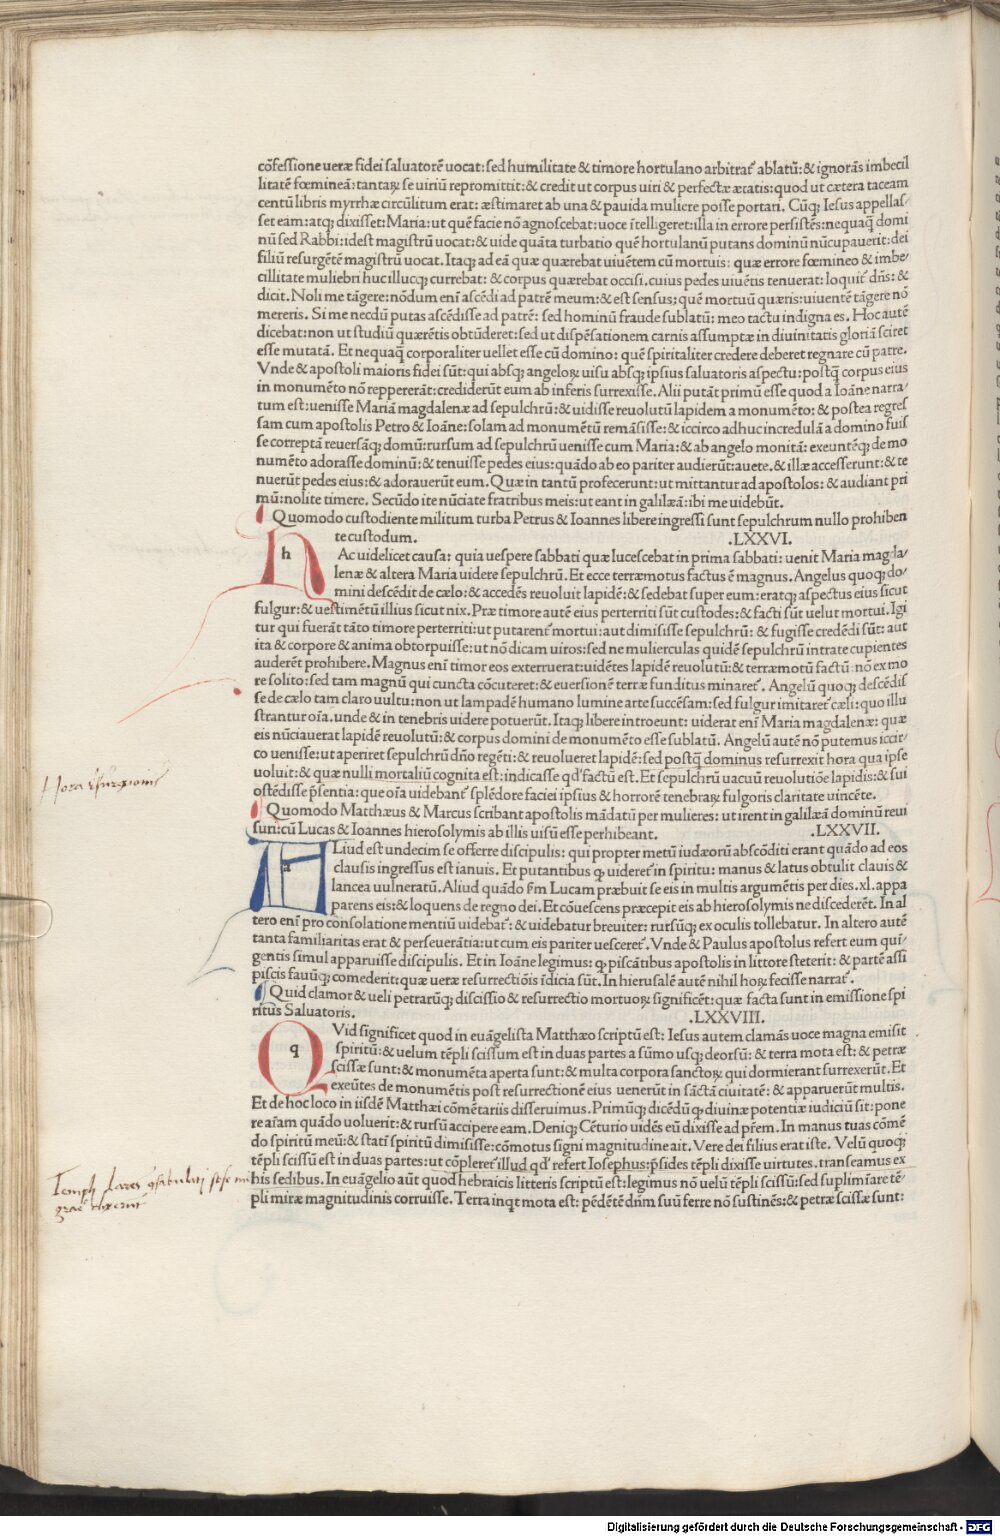 cōfessione ueræ fidei saluatorē uocat: sed humilitate & timore hortulano arbitrat᷑ ablatū: & ignorās imbecil
litatē fœmineā: tantaꝝ se uiriū repromittit: & credit ut corpus uiri & perfectæ ætatis: quod ut cætera taceam
centū libris myrrhæ circūlitum erat: æstimaret ab una & pauida muliere posse portari. Cūq; Iesus appellas⸗
set eam: atq; dixisset: Maria: ut quē facie nō agnoscebat: uoce ītelligeret: illa in errore persistēs: nequaq̄ domi
nū sed Rabbi: idest magistrū uocat: & uide quāta turbatio quē hortulanū putans dominū nūcupauerit: dei
filiū resurgētē magistrū uocat. Itaq; ad eā quæ quærebat uiuētem cū mortuis: quæ errore fœmineo & imbe⸗
cillitate muliebri huc illucq; currebat: & corpus quærebat occisi. cuius pedes uiuētis tenuerat: loquit᷑ dn̄s: &
dicit. Noli me tāgere: nōdum enī ascēdi ad patrē meum: & est sensus: quē mortuū quæris: uiuentē tāgere nō
mereris. Si me necdū putas ascēdisse ad patrē: sed hominū fraude sublatū: meo tactu indigna es. Hoc autē
dicebat: non ut studiū quærētis obtūderet: sed ut dispēsationem carnis assumptæ in diuinitatis gloriā sciret
esse mutatā. Et nequaq̄ corporaliter uellet esse cū domino: quē spiritaliter credere deberet regnare cū patre.
Vnde & apostoli maioris fidei sūt: qui absq; angeloꝝ uisu absq; ipsius saluatoris aspectu: postq̄ corpus eius
in monumēto nō reppererāt: crediderūt eum ab inferis surrexisse. Alii putāt primū esse quod a Ioāne narra⸗
tum est: uenisse Mariā magdalenæ ad sepulchrū: & uidisse reuolutū lapidem a monumēto: & postea regres
sam cum apostolis Petro & Ioāne: solam ad monumētū remāsisse: & iccirco adhuc incredulā a domino fuis
se correptā reuersāq; domū: rursum ad sepulchrū uenisse cum Maria: & ab angelo monitā: exeuntēq; de mo
numēto adorasse dominū: & tenuisse pedes eius: quādo ab eo pariter audierūt: auete. & illæ accesserunt: & te
nuerūt pedes eius: & adorauerūt eum. Quæ in tantū profecerunt: ut mittantur ad apostolos: & audiant pri
mū: nolite timere. Secūdo ite nūciate fratribus meis: ut eant in galilæā: ibi me uidebūt.
Quomodo custodiente militum turba Petrus & Ioannes libere ingressi sunt sepulchrum nullo prohiben
te custodum. .LXXVI.
h Ac uidelicet causa: quia uespere sabbati quæ lucescebat in prima sabbati: uenit Maria magda⸗
lenæ & altera Maria uidere sepulchrū. Et ecce terræmotus factus ē magnus. Angelus quoq; do⸗
mini descēdit de cælo: & accedēs reuoluit lapidē: & sedebat super eum: eratq; aspectus eius sicut
fulgur: & uestimētū illius sicut nix. Præ timore autē eius perterriti sūt custodes: & facti sūt uelut mortui. Igi
tur qui fuerāt tāto timore perterriti: ut putarent᷑ mortui: aut dimisisse sepulchrū: & fugisse credēdi sūt: aut
ita & corpore & anima obtorpuisse: ut nō dicam uiros: sed ne mulierculas quidē sepulchrū intrate cupientes
auderēt prohibere. Magnus enī timor eos exterruerat: uidētes lapidē reuolutū: & terræmotū factū: nō ex mo
re solito: sed tam magnū qui cuncta cōcuteret: & euersionē terræ funditus minaret᷑. Angelū quoq; descēdis
se de cælo tam claro uultu: non ut lampadē humano lumine arte succēsam: sed fulgur imitaret᷑ cæli: quo illu
strantur oīa. unde & in tenebris uidere potuerūt. Itaq; libere introeunt: uiderat enī Maria magdalenæ: quæ
eis nūciauerat lapidē reuolutū: & corpus domini de monumēto esse sublatū. Angelū autē nō putemus iccir⸗
co uenisse: ut aperiret sepulchrū dn̄o regēti: & reuolueret lapidē: sed postq̄ dominus resurrexit hora qua ipse
uoluit: & quæ nulli mortaliū cognita est: indicasse qd᷑ factū est. Et sepulchrū uacuū reuolutiōe lapidis: & sui
ostēdisse p̄sentia: que oīa uidebant᷑ splēdore faciei ipsius & horrorē tenebraꝝ fulgoris claritate uincēte.
Hora resurrexionis
Quomodo Matthæus & Marcus scribant apostolis mādatū per mulieres: ut irent in galilæā dominū reui
suri: cū Lucas & Ioannes hierosolymis ab illis uisū esse perhibeant. .LXXVII.
a Liud est undecim se offerre discipulis: qui propter metū iudæorū abscōditi erant quādo ad eos
clausis ingressus est ianuis. Et putantibus ꝙ uideret᷑ in spiritu: manus & latus obtulit clauis &
lancea uulneratū. Aliud quādo s̄m Lucam præbuit se eis in multis argumētis per dies .xl. appa
parens eis: & loquens de regno dei. Et cōuescens præcepit eis ab hierosolymis ne discederēt. In al
tero enī pro consolatione mentiū uidebat᷑: & uidebatur breuiter: rursūq; ex oculis tollebatur. In altero autē
tanta familiaritas erat & perseuerātia: ut cum eis pariter uesceret᷑. Vnde & Paulus apostolus refert eum quī⸗
gentis simul apparuisse discipulis. Et in Ioāne legimus: ꝙ piscātibus apostolis in littore steterit: & partē assi
piscis fauūq; comederit: quæ ueræ resurrectiōis īdicia sūt. In hierusalē autē nihil hoꝝ fecisse narrat᷑.
Quid clamor & ueli petrarūq; discissio & resurrectio mortuoꝝ significēt: quæ facta sunt in emissione spi
ritus Saluatoris. .LXXVIII.
q Vid significet quod in euāgelista Matthæo scriptū est: Iesus autem clamās uoce magna emisit
spiritū: & uelum tēpli scissum est in duas partes a sūmo usq; deorsū: & terra mota est: & petræ
scissæ sunt: & monumēta aperta sunt: & multa corpora sanctoꝝ qui dormierant surrexerūt. Et
exeūtes de monumētis post resurrectionē eius uenerūt in sāctā ciuitatē: & apparuerūt multis.
Et de hoc loco in iisdē Matthæi cōmētariis disseruimus. Primūq; dicēdū ꝙ diuinæ potentiæ iudiciū sit: pone
re aīam quādo uoluerit: & rursū accipere eam. Deniq; Cēturio uidēs eū dixisse ad p̄rem. In manus tuas cōmē
do spiritū meū: & statī spiritū dimisisse: cōmotus signi magnitudine ait. Vere dei filius erat iste. Velū quoq;
tēpli scissū est in duas partes: ut cōpleret᷑ illud qd᷑ refert Iosephus: p̄sides tēpli dixisse uirtutes. transeamus ex
his sedibus. In euāgelio aūt quod hebraicis litteris scriptū est: legimus nō uelū tēpli scissū: sed suplim īare tē⸗
pli miræ magnitudinis corruisse. Terra inqt mota est: pēdētē dn̄m suū ferre nō sustinēs: & petræ scissæ sunt:
Digitalisierung gefördert durch die Deutsche Forschungsgemeinschaft - DFG